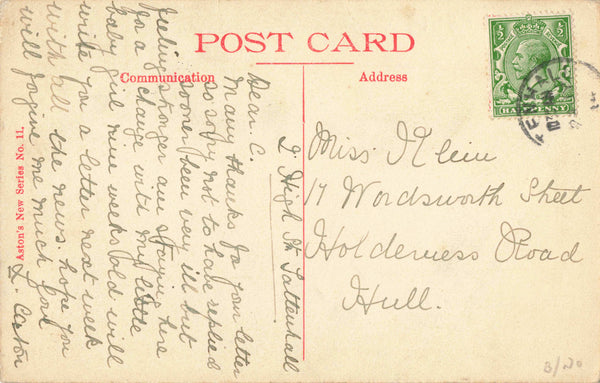 POST CARD
Communication
Address
Dear C.
Many thanks for your letter
so sorry not to have replied
sooner been very ill but
feeling stronger am staying here
for a change with my little
baby girl nine weeks old will
write you a letter next week
with all the news. hope you
will forgive me much love
L. Caston
2 High St Tattenhall
Miss Klein
17 Wordsworth Street
Holderness Road
Hull.
Aston's New Series No. 11.
½
½
HALFPENNY
B/20